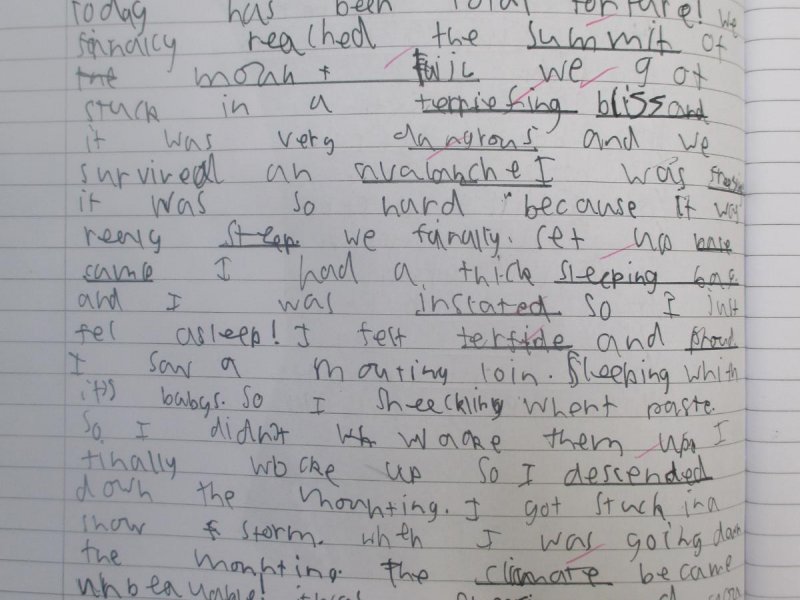 Today has been total torture! we
finally reached the summit of
the mount fuji we got
stuck in a terriefing blissard
it was very dangrous and we
survived an avalanche I was
it was so hard because it was
reerly steep we finally. set up base
came I had a thick sleeping bag
and I was insrated so I just
fel asleep! I felt terfide and proud
I saw a mounting loin. Sleeping whith
it's babys. so I sheeckling whent paste.
So I didn't wh wacke them up I
finally wocke up so I dessended
down the mounting. I got stuck in a
snow f storm. when I was going down
the mounting. the climate became
unbearable!